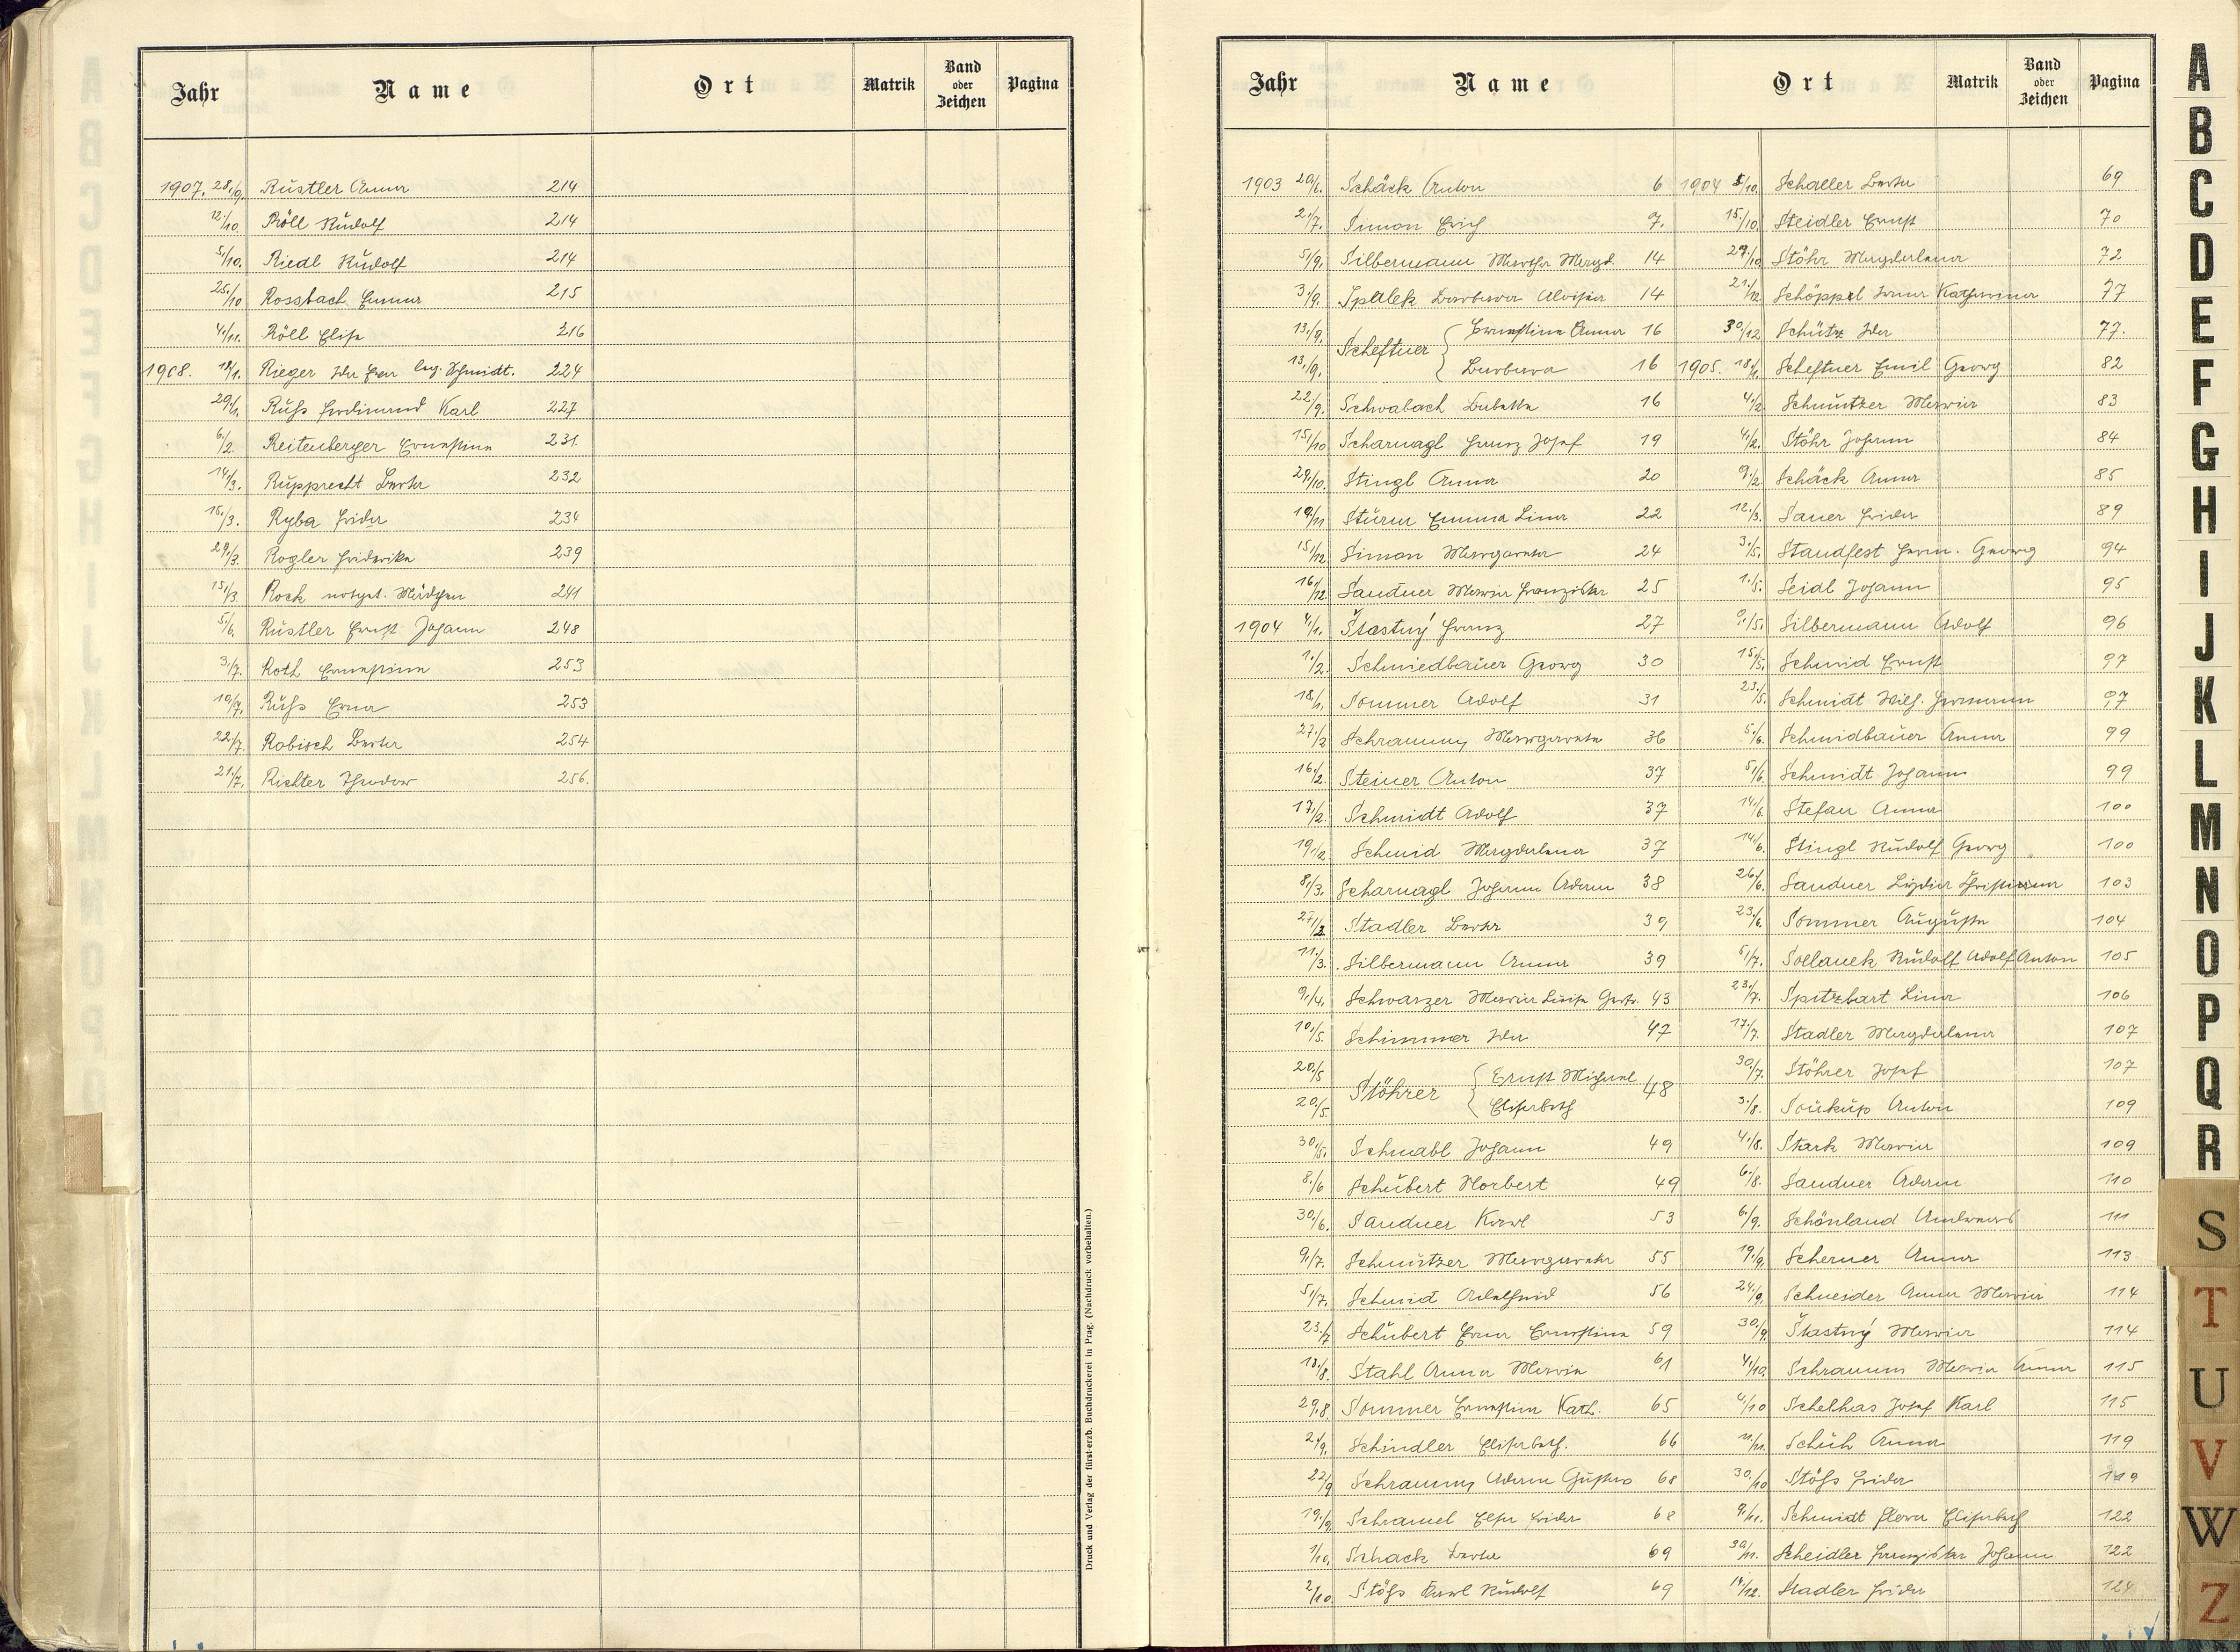 Jahr Name Ort Matrik Band oder Zeichen Pagina
1907. 28./9. Rüstler Anna 214
12./10. Röll Rudolf 214
5./10. Riedl Rudolf 214
25./10 Rossbach Emma 215
4./11. Röll Elise 216
1908. Rieger Ida leg. Schmidt. 224
29./1. Ruß Ferdinand Karl 227
6./2. Reitenberger Ernestine 231.
14./3. Rupprecht Berta 232
15./3. Ryba Frida 234
29./3. Rogler Friderika 239
15./3. Rock notget. Mädchen 241
5./6. Rüstler Ernst Johann 248
3./7. Roth Ernestine 253
19./7. Ruß Erna 253
22./7. Robisch Berta 254
21./7. Richter Theodor 256.
Druck und Verlag der fürst-erzb. Buchdruckerei in Prag. (Nachdruck vorbehalten.)
Jahr Name Ort Matrik Band oder Zeichen Pagina
1903 20./6. Schäck Anton 6 1904 5/10. Schaller Berta 69
2./7. Simon Erich 7. 15./10. Steidler Ernst 70
5./9. Silbermann Martha Magd. 14 29./10 Stöhr Magdalena 72
3./9. Spalek Barbara Aloisia 14 21./12. Schöppel Irma Katharina 77
13./9. Scheftner { Ernestine Anna 16 30/12 Schütz Ida 77.
13./9. Barbara 16 1905. 18./1. Scheftner Emil Georg 82
22./9. Schwabach Babette 16 4./2. Schmutzer Maria 83
15./10 Scharnagl Franz Josef 19 4./2. Stöhr Johann 84
29./10. Stingl Anna 20 9./2 Schäck Anna 85
19./11 Sturm Emma Lina 22 12./3. Sauer Frida 89
15./12. Simon Margareta 24 3./5. Standfest Herm. Georg 94
16./12. Sandner Maria Franziska 25 1./5. Seidl Johann 95
1904 4./1. Šťastný Franz 27 9./5. Silbermann Adolf 96
1./2. Schmiedbauer Georg 30 15./5. Schmid Ernst 97
18./1. Sommer Adolf 31 23./5. Schmidt Wilh. Hermann 97
27./2 Schramm Margareta 36 5./6. Schmidbauer Anna 99
16./2. Steiner Anton 37 5./6. Schmidt Johann 99
17./2. Schmidt Adolf 37 14./6. Stefan Anna 100
19./2. Schmid Magdalena 37 14./6. Stingl Rudolf Georg 100
8./3. Scharnagl Johann Adam 38 26./6. Sandner Lydia Christiana 103
27./2. Stadler Berta 39 23./6. Sommer Auguste 104
11./3. Silbermann Anna 39 5./7. Sollanek Rudolf Adolf Anton 105
9./4. Schwarzer Maria Luise Gert. 43 23./7. Spitzbart Lina 106
10./5. Schimmer Ida 47 17./7. Stadler Magdalena 107
20./5 Stöhrer { Ernst Michael 48 30./7. Stöhrer Josef 107
20./5. Elisabeth 3./8. Soukup Anton 109
30./5. Schnabl Johann 49 4./8. Stark Maria 109
8./6 Schubert Norbert 49 6./8. Sandner Adam 110
30./6. Sandner Karl 53 6./9. Schönland Andreas 111
9./7. Schmutzer Margareta 55 19./9. Scherner Anna 113
5./7. Schmid Adelheid 56 24./9. Schneider Anna Maria 114
23./7 Schubert Erna Ernestine 59 30./9. Šťastný Maria 114
13./8. Stahl Anna Maria 61 4./10. Schramm Maria Anna 115
29./8. Sommer Ernestine Kath. 65 4./10 Schelhas Josef Karl 115
2./9. Schindler Elisabeth. 66 11./11. Schuh Anna 119
22/9 Schramm Adam Gustav 68 30./10 Stöß Frida 119
19./9. Schramel Elsa Frida 68 9./11. Schmidt Flora Elisabeth 122
1/10. Schack Berta 69 30./11. Scheidler Franziska Johann 122
2/10. Stöß Karl Rudolf 69 14/12. Stadler Frida 124
A
B
C
D
E
F
G
H
I
J
K
L
M
N
O
P
Q
R
S
T
U
V
W
Z